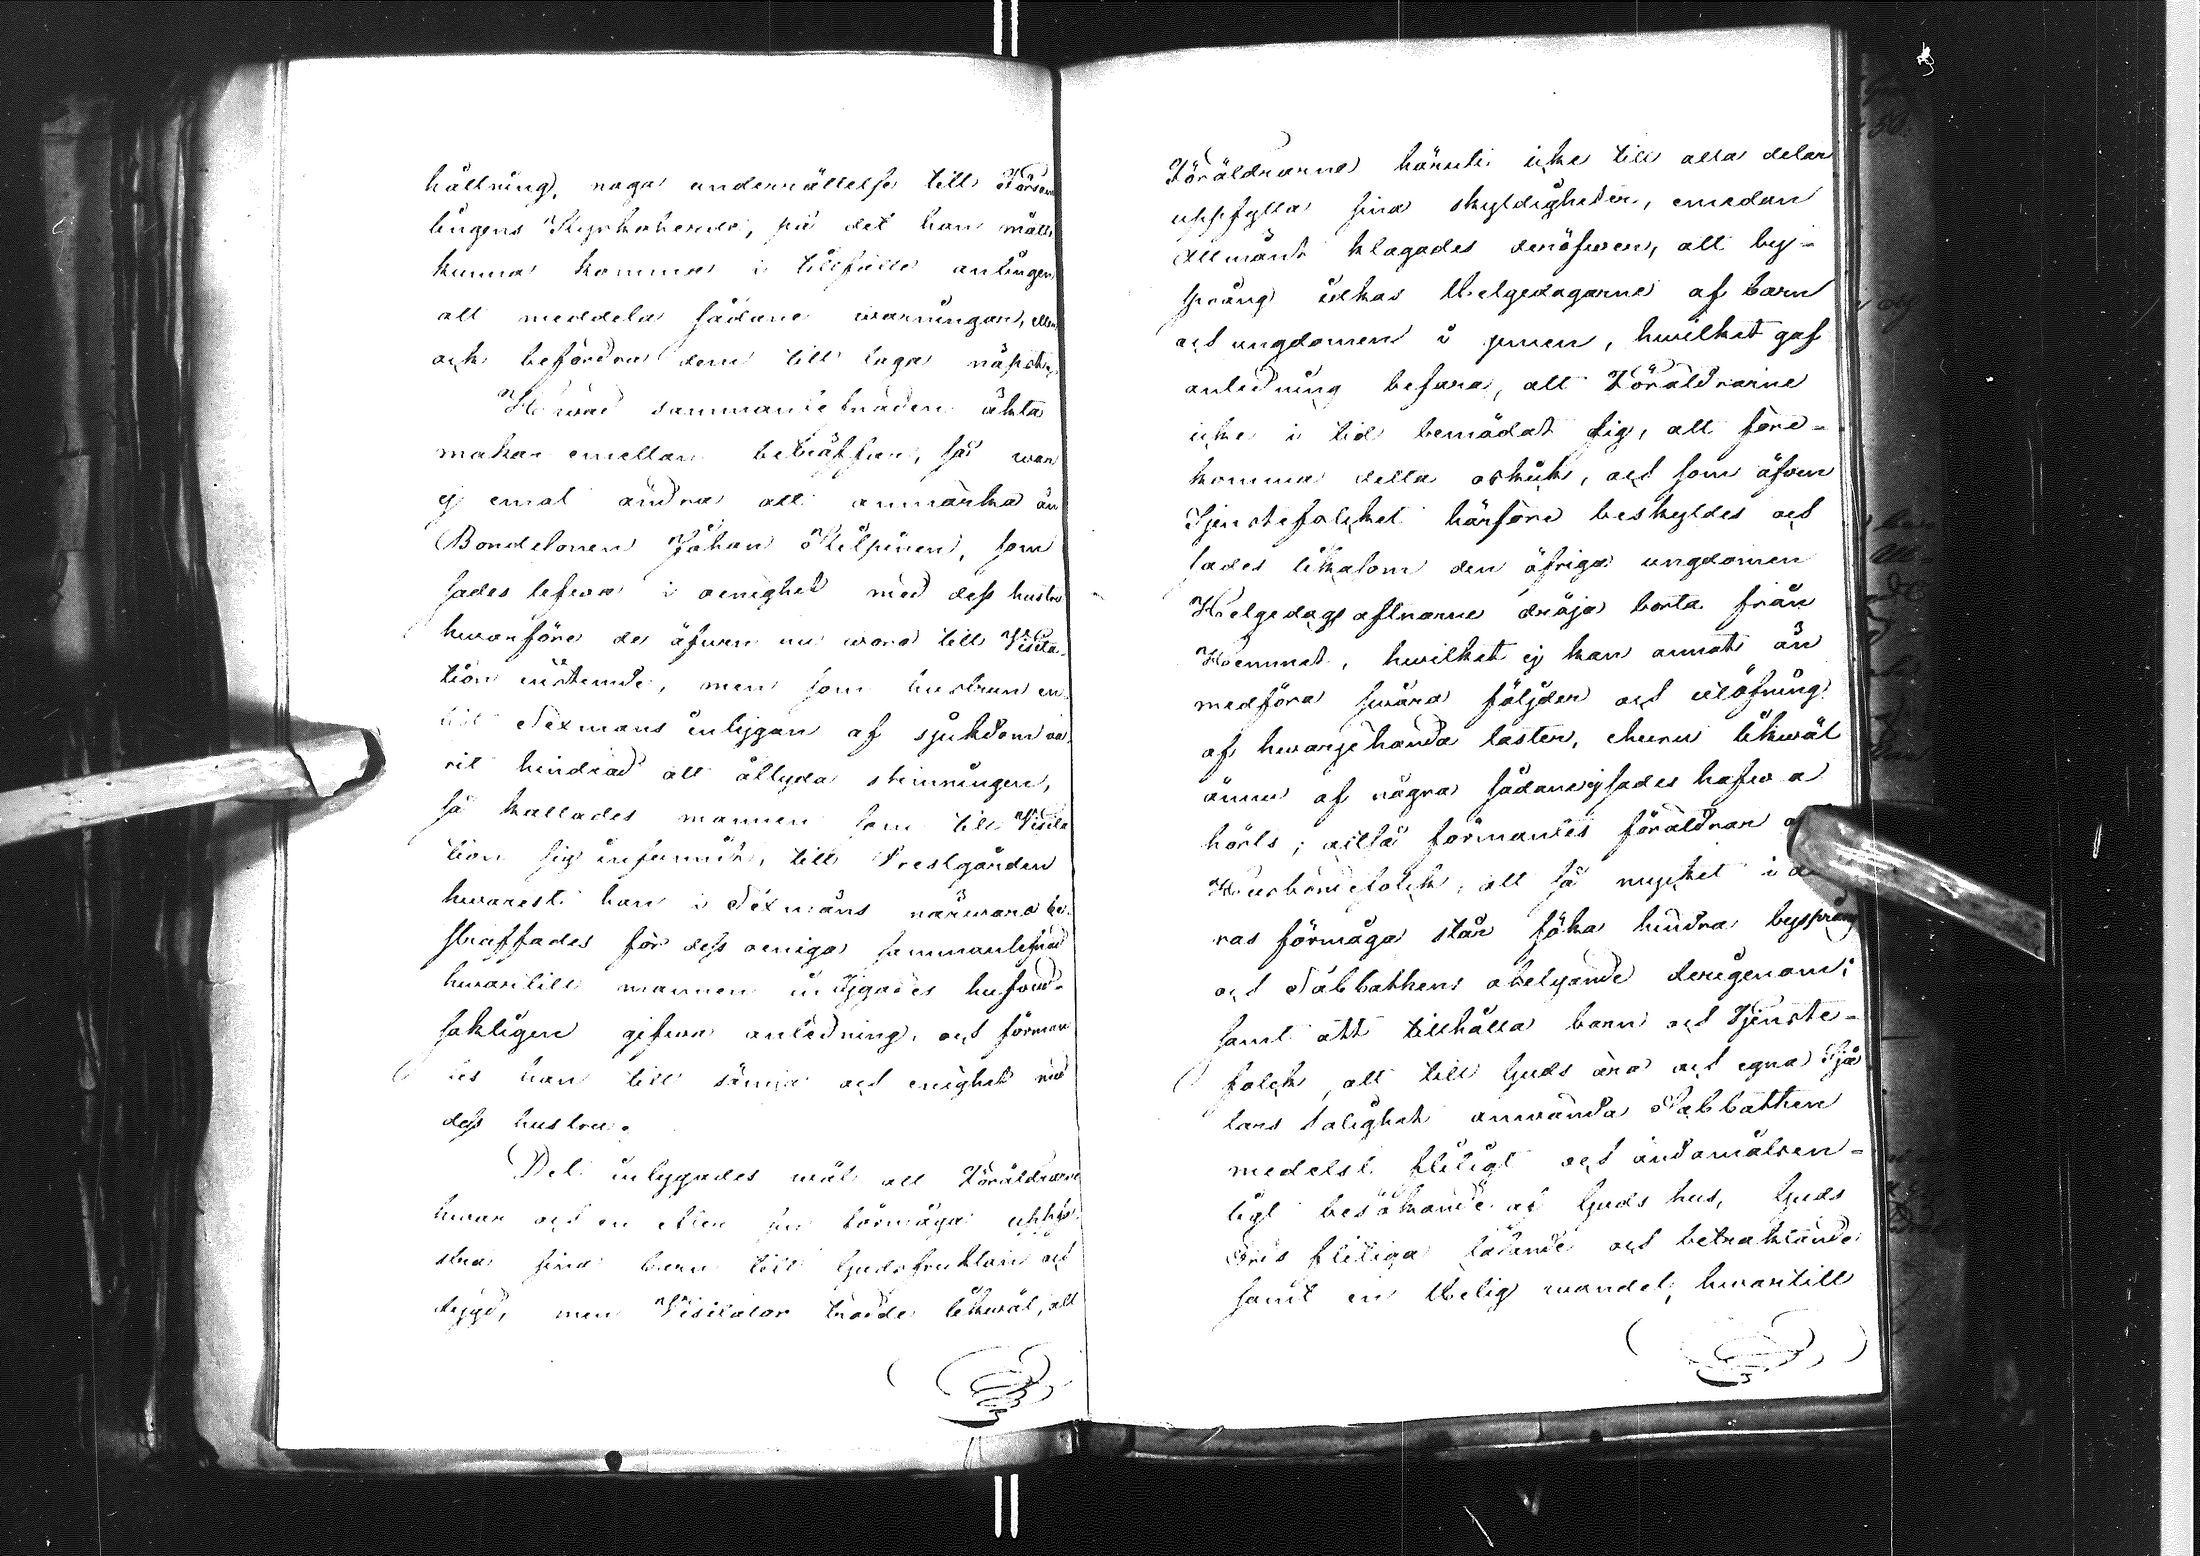 hållning, noga underrättelse till Försam
lingens Kyrkoherde, på det han måtte
kunna komma i tillfälle antingen
att meddela sådane warningar, eller
ock befordra dem till laga näpst.
Hwad sammanlefnaden äkta
makar emellan beträffar, så war
ej emot andra att anmärka än
Bondesonen Johan Kilpinen, som
sades lefwa i oenighet med dess hustru
hwarföre de äfwen nu woro till Visita-
tion instemde, men som hustrun en-
ligt Sexmans intygan af sjukdom wa-
rit hindrad att åtlyda stemningen,
så kallades mannen som till Visita
tion sig infunnit, till Prestgården
hwarest han i Sexmäns närwaro be-
straffades för dess oeniga sammanlefnad
hwartill mannen intygades hufwud-
sakligen gifwa anledning, och förman
tes han till sämja och enighet med
dess hustru.
Det intygades wäl att Föräldrarne
hwar och en efter sin förmåga uppfo-
stra sina barn till Gudsfruktan och
dygd, men Visitator trodde likwäl, att
Föräldrarne häruti icke till alla delar
uppfylla sina skyldigheter, emedan
allmänt klagades deröfwer, att by-
språng idkas Helgedagarne af barn
och ungdomen i gemen, hwilket gaf
anledning befara, att Föräldrarne
icke i tid bemödat sig, att före-
komma detta oskick, och som äfwen
Tjenstefolcket härföre beskyldes och
sades likasom den öfriga ungdomen
Helgedags aftnarne dröja borta från
Hemmet, hwilket ej kan annat än
medföra swåra följder och utöfning
af hwarjehanda laster, ehuru likwäl
ännu af några sådane ej sades hafwa
hörts; altså förmantes föräldrar
Husbondefolck, att så mycket i
ras förmåga står söka hindra byspräng
och Sabbathens ohelgande derigenom;
samt att tillhålla barn och Tjenste-
folck, att till Guds ära och egna Sjä
lars salighet använda Sabbathen
medelst flitigt och ändamålsen-
ligt besökande af Guds hus, Guds
Ords flitiga läsande och betraktande
samt en Helig wandel, hwartill